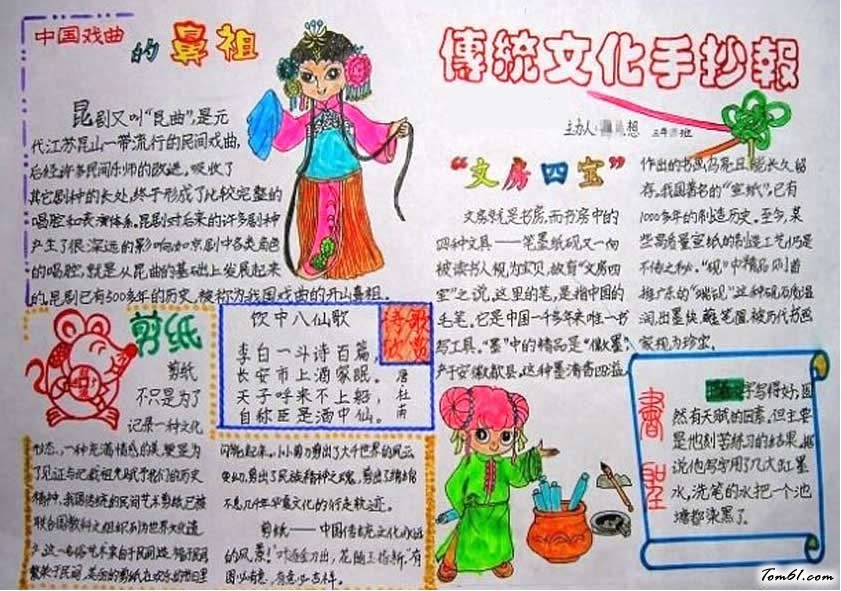 中国戏曲
的鼻祖
昆剧又叫“昆曲”,是元
代江苏昆山一带流行的民间戏曲,
后经许多民间乐师的改进,吸收了
其它剧种的长处,终于形成了比较完整的
唱腔和表演体系。昆剧对后来的许多剧种
产生了很深远的影响如京剧中各类角色
的唱腔,就是从昆曲的基础上发展起来
的,昆剧已有500多年的历史,被称为我国戏曲的开山鼻祖。
傳統文化手抄報
主办人: 想 三年 班
“文房四宝”
文房就是书房,而书房中的
四种文具——笔墨纸砚又一向
被读书人视为宝贝,故有“文房四
宝”之说。这里的笔,是指中国的
毛笔。它是中国一千多年来唯一书
写工具。“墨”中的精品是“徽墨”,
产于安徽歙县。这种墨清香四溢,
作出的书画乌亮且能长久留
存。我国著名的“宣纸”,已有
1000多年的制造历史。至今,某
些高质量宣纸的制造工艺仍是
不传之秘。“砚”中精品则首
推广东的“端砚”这种砚石质温
润,出墨快,蘸笔圆,被历代书画
家视为珍宝。
剪纸
剪纸
不只是为了
记录一种文化
形态、一种充满情感的美,更是为
了见证与记载祖先赋予我们的历史
精神,我国传统的民间艺术剪纸已被
联合国教科文组织列为世界文化遗
产
繁荣于民间,美丽的剪纸在欢乐的节日里
饮中八仙歌
李白一斗诗百篇,
长安市上酒家眠。
天子呼来不上船,
自称臣是酒中仙。
诗歌
欣赏
唐
杜
甫
闪亮起来。小小剪刀剪出了大千世界的风云
变幻,剪出了民族精神之魂,剪出了
不息几千年华夏文化的行走轨迹。
剪纸——中国传统文化永远
的风景!
图必有意,有意必吉祥。
書聖
字写得好,固
然有天赋的因素,但主要
是他刻苦练习的结果。据
说他写字用了几大缸墨
水,洗笔的水把一个池
塘都染黑了。
Tom61.com